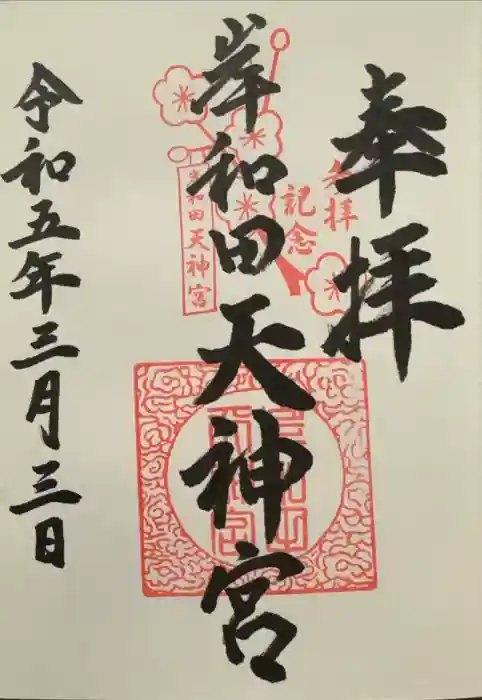 奉拝
参拝
記念
岸和田天神宮
岸和田天神宮
令和五年三月三日